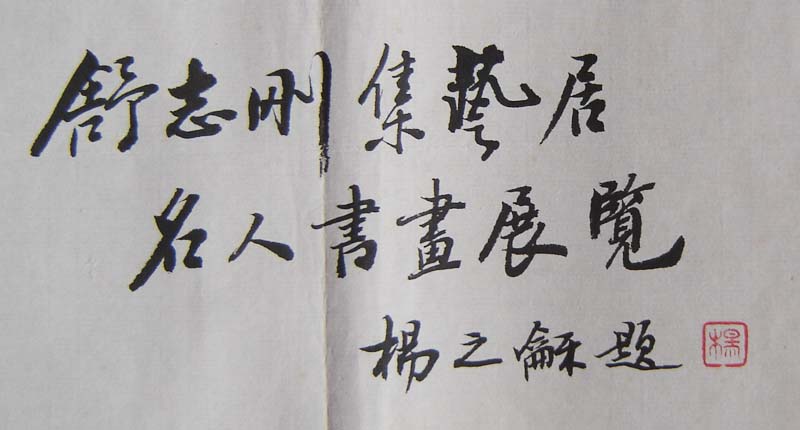 舒志剛集藝居
名人書畫展覽
楊之龢題
楊